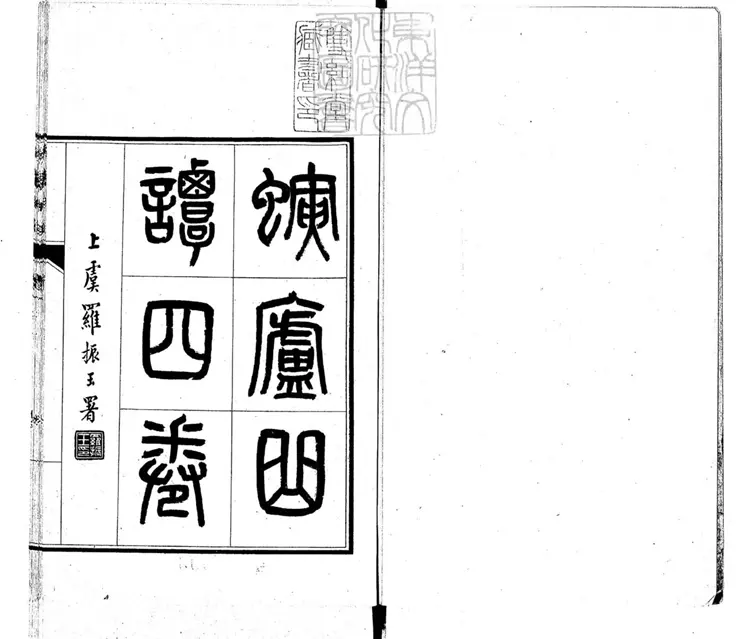 螾廬曲
譚四卷
上虞羅振玉署
東洋文
化研究
雙紅堂
藏書印